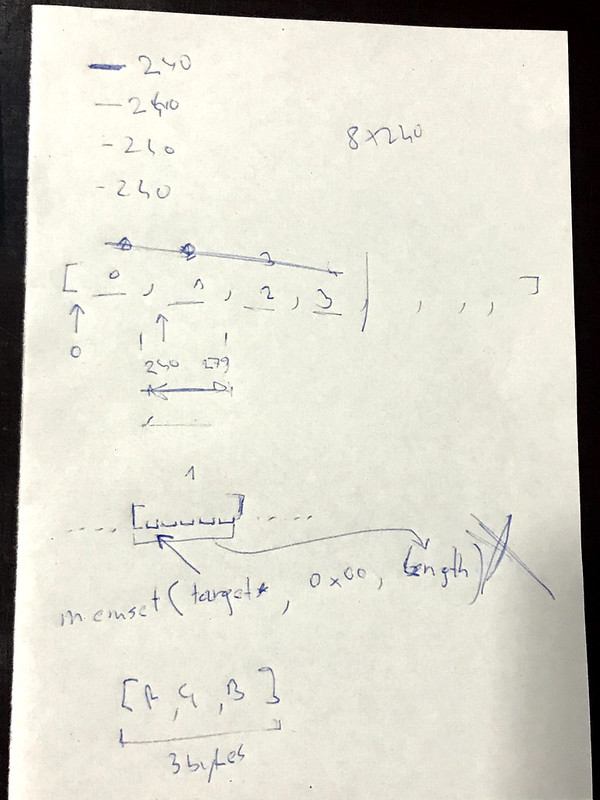 - 240
- 240
- 240
- 240
8x240
[ 0, 1, 2, 3, , , , ]
0
240 279
1
.... [ ] ....
memset(target*, 0x00, Length)
[R, G, B]
3 bytes